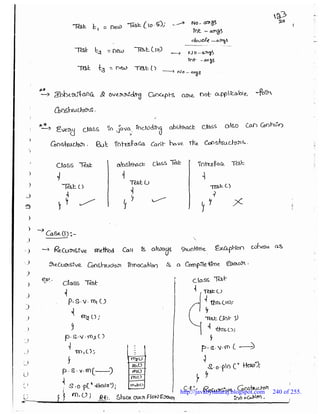 123
Test t1 = new Test(10.5); → No-args
Int-args
double-args
Test t2 = new Test(10) → No-args
Int-args
Test t3 = new Test() → No-args
** → Inheritance & overriding Concepts are not applicable for
Constructors.
* → Every class in java including abstract class also can Contain
Constructor. But Interface can't have the Constructors.
class Test
{
Test()
{
}
}
abstract class Test
{
Test()
{
}
}
Interface Test
{
Test()
{
}
}
→ Case(i):-
→ Recursive method Call is always Runtime Exception where as
recursive Constructor Invocation is a Compile time Error.
ex:-
class Test
{
p.s.v.m1()
{
m2();
}
p.s.v.m2()
{
m1();
}
p.s.v.m(—)
{
s.o.pln("Hello");
m1();
m1()
m2()
m1()
main()
RE: StackOverFlowError
class Test
{
Test()
{
this(10);
}
Test(int i)
{
this();
}
p.s.v.m(—)
{
s.o.pln("Hello");
}
C.E:- Recursive Constructor
Invocation.
240 of 255.